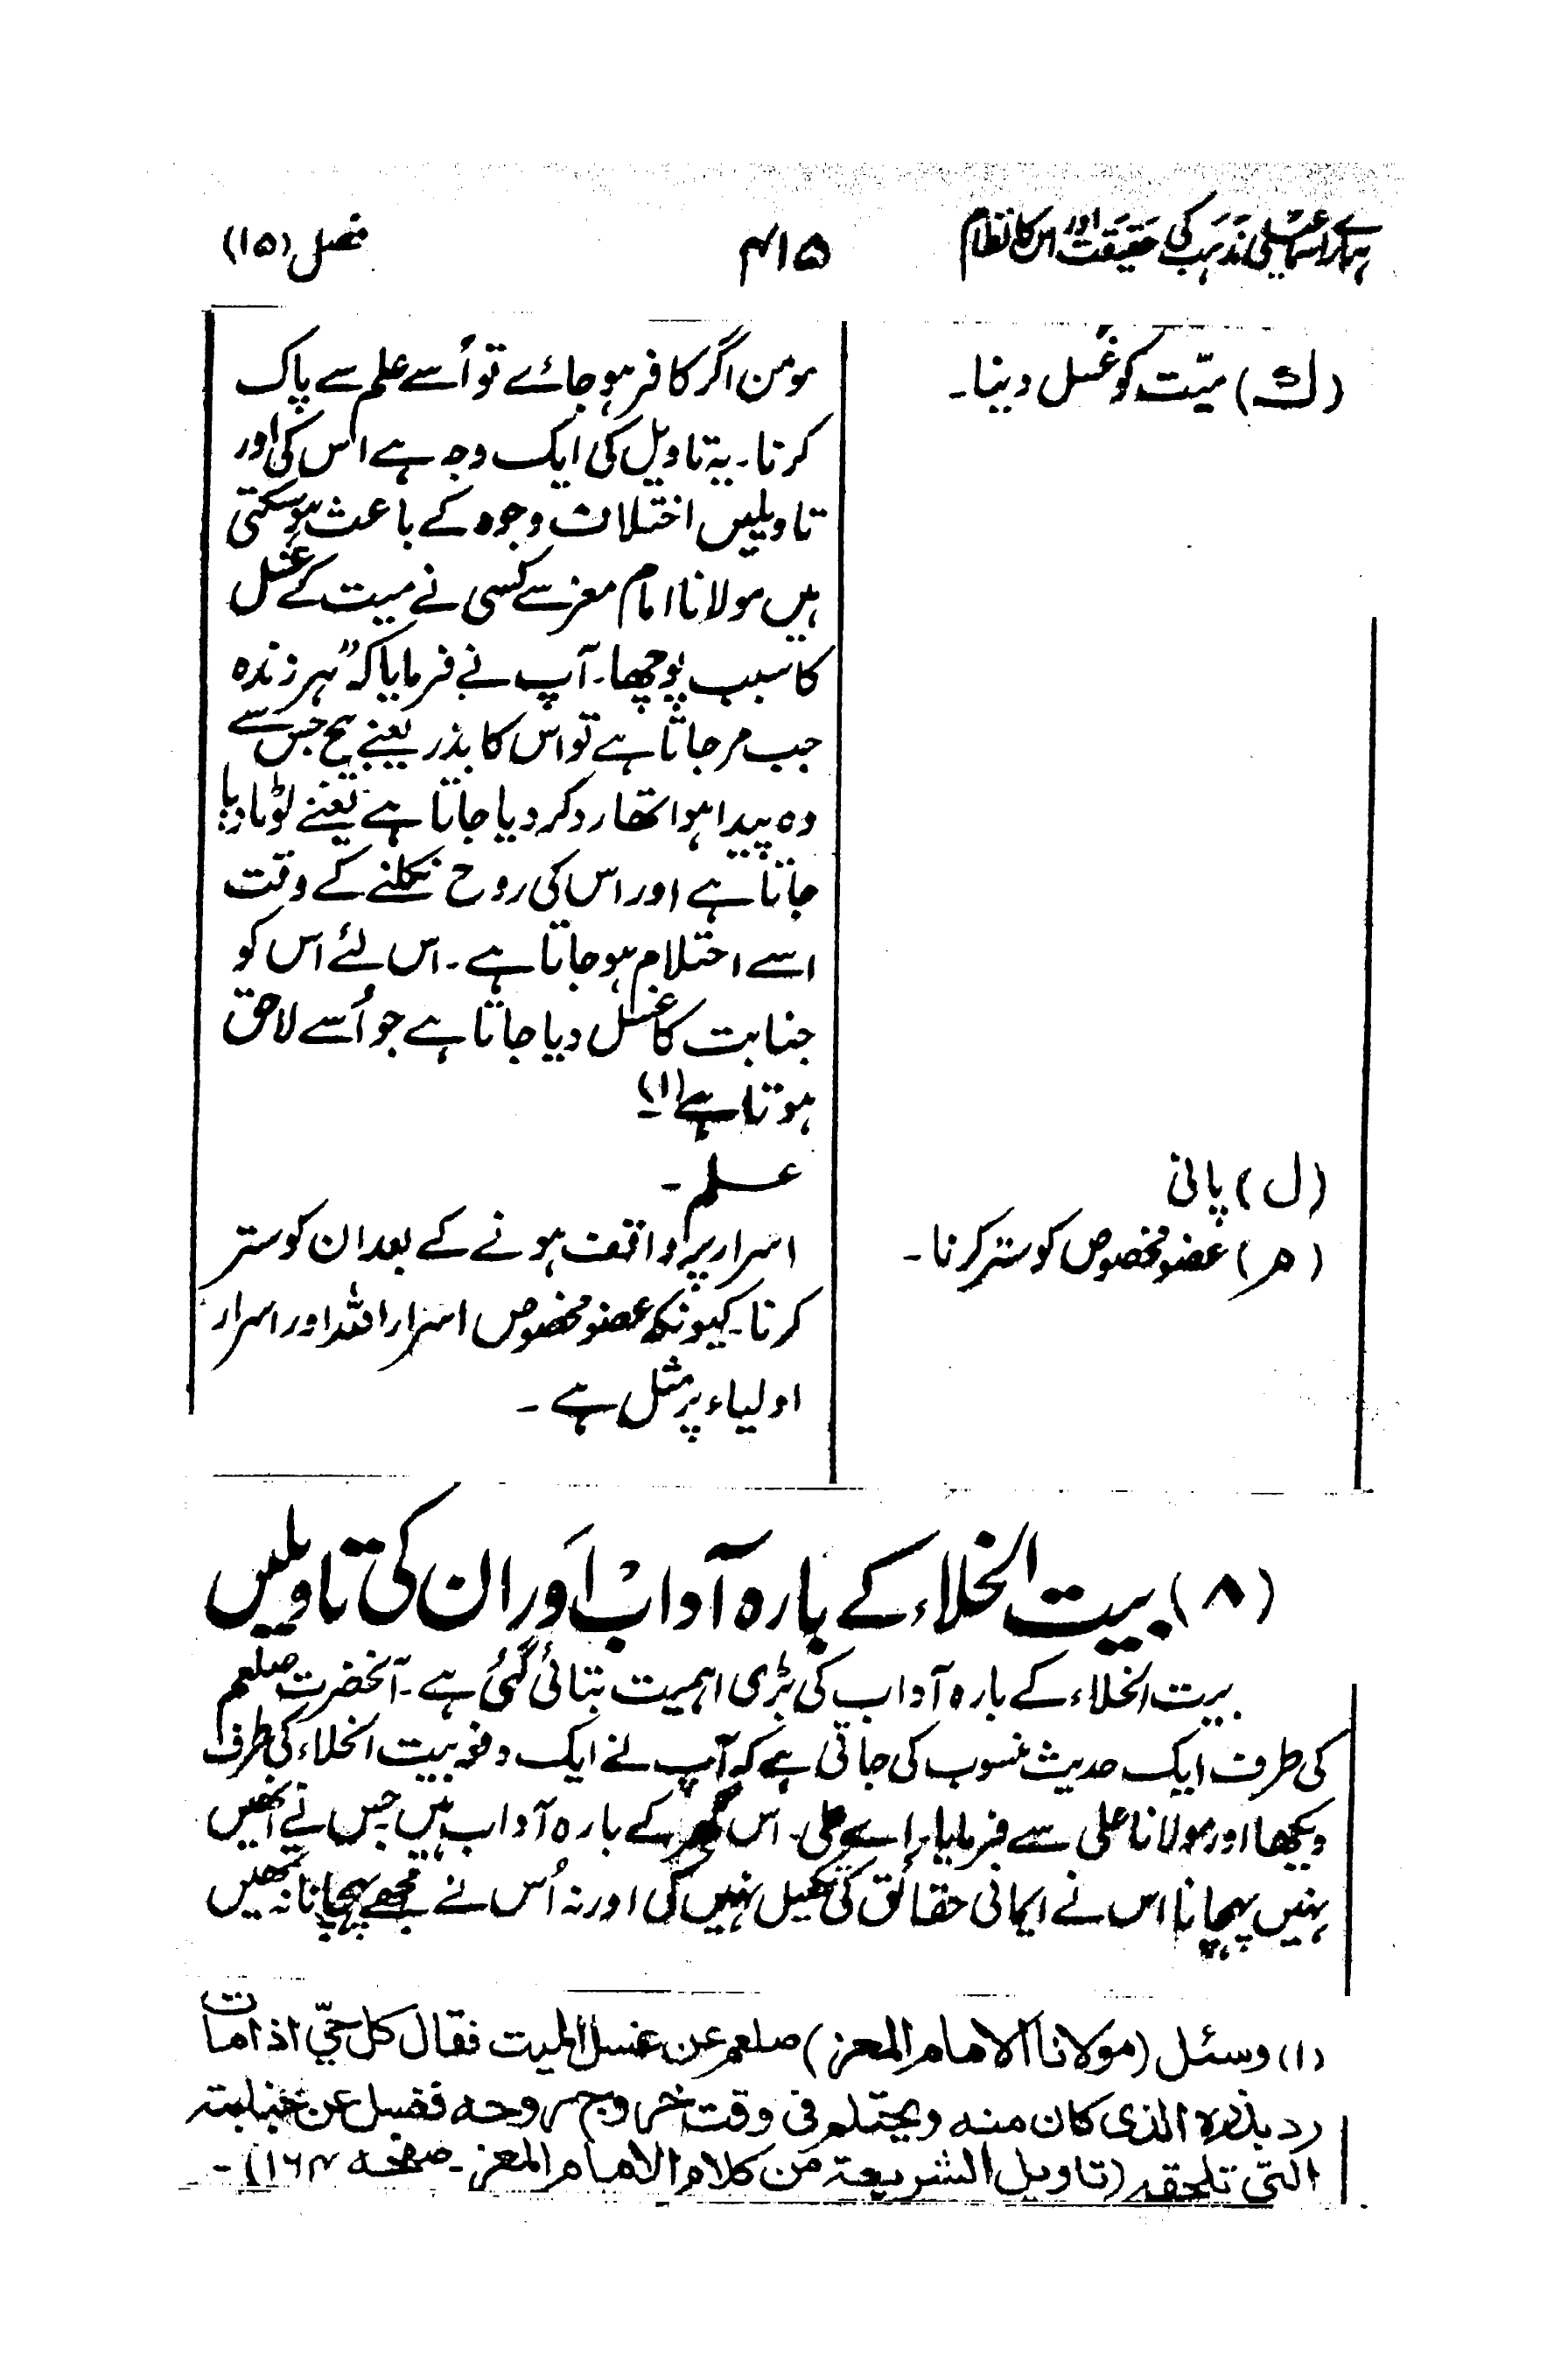 ہمارے اسماعیلی مذہب کی حقیقت اور اس کا نظام
۴۱۵
فصل (۱۵)
(ک) میّت کو غُسل دینا۔
مومن اگر کافر ہو جائے تو اُسے علم سے پاک
کرنا۔ یہ تاویل کی ایک وجہ ہے اس کی اور
تاویلیں اختلاف وجوہ کے باعث ہو سکتی
ہیں مولانا امام معز سے کسی نے میت کے غسل
کا سبب پوچھا۔ آپ نے فرمایا کہ "ہر زندہ
جب مر جاتا ہے تو اس کا بذر یعنے بیج جس سے
وہ پیدا ہوا تھا رد کر دیا جاتا ہے یعنے لوٹا دیا
جاتا ہے اور اس کی روح نکلنے کے وقت
اسے احتلام ہو جاتا ہے۔ اس لئے اس کو
جنابت کا غسل دیا جاتا ہے جو اُسے لاحق
ہوتا ہے (۱)
(ل) پانی
علم۔
(ھ) عضو مخصوص کو ستر کرنا۔
اسرار پر واقف ہونے کے بعد ان کو ستر
کرنا۔ کیونکہ عضو مخصوص اسرار اللہ اور اسرار
اولیاء پر مثل ہے۔
(۸) بیت الخلاء کے بارہ آداب اور ان کی تاویلیں
بیت الخلاء کے بارہ آداب کی بڑی اہمیت بتائی گئی ہے۔ آنحضرت صلعم
کی طرف ایک حدیث منسوب کی جاتی ہے کہ آپ نے ایک دفعہ بیت الخلاء کی طرف
دیکھا اور مولانا علی سے فرمایا، اے علی۔ اس گھر کے بارہ آداب ہیں جس نے انھیں
نہیں پہچانا اس نے ایمانی حقائق کی تکمیل نہیں کی اور نہ اُس نے مجھے پہچانا نہ تمھیں
(۱) وسئل (مولانا الامام المعز) صلعم عن غسل المیت فقال کل حیّ اذا مات
رد بذرہ الذی کان منہ ویحتلم فی وقت خروج روحہ فغسل عن جنابتہ
التی تلحقہ (تاویل الشریعۃ من کلام الامام المعز۔ صفحہ ۱۶۴)۔